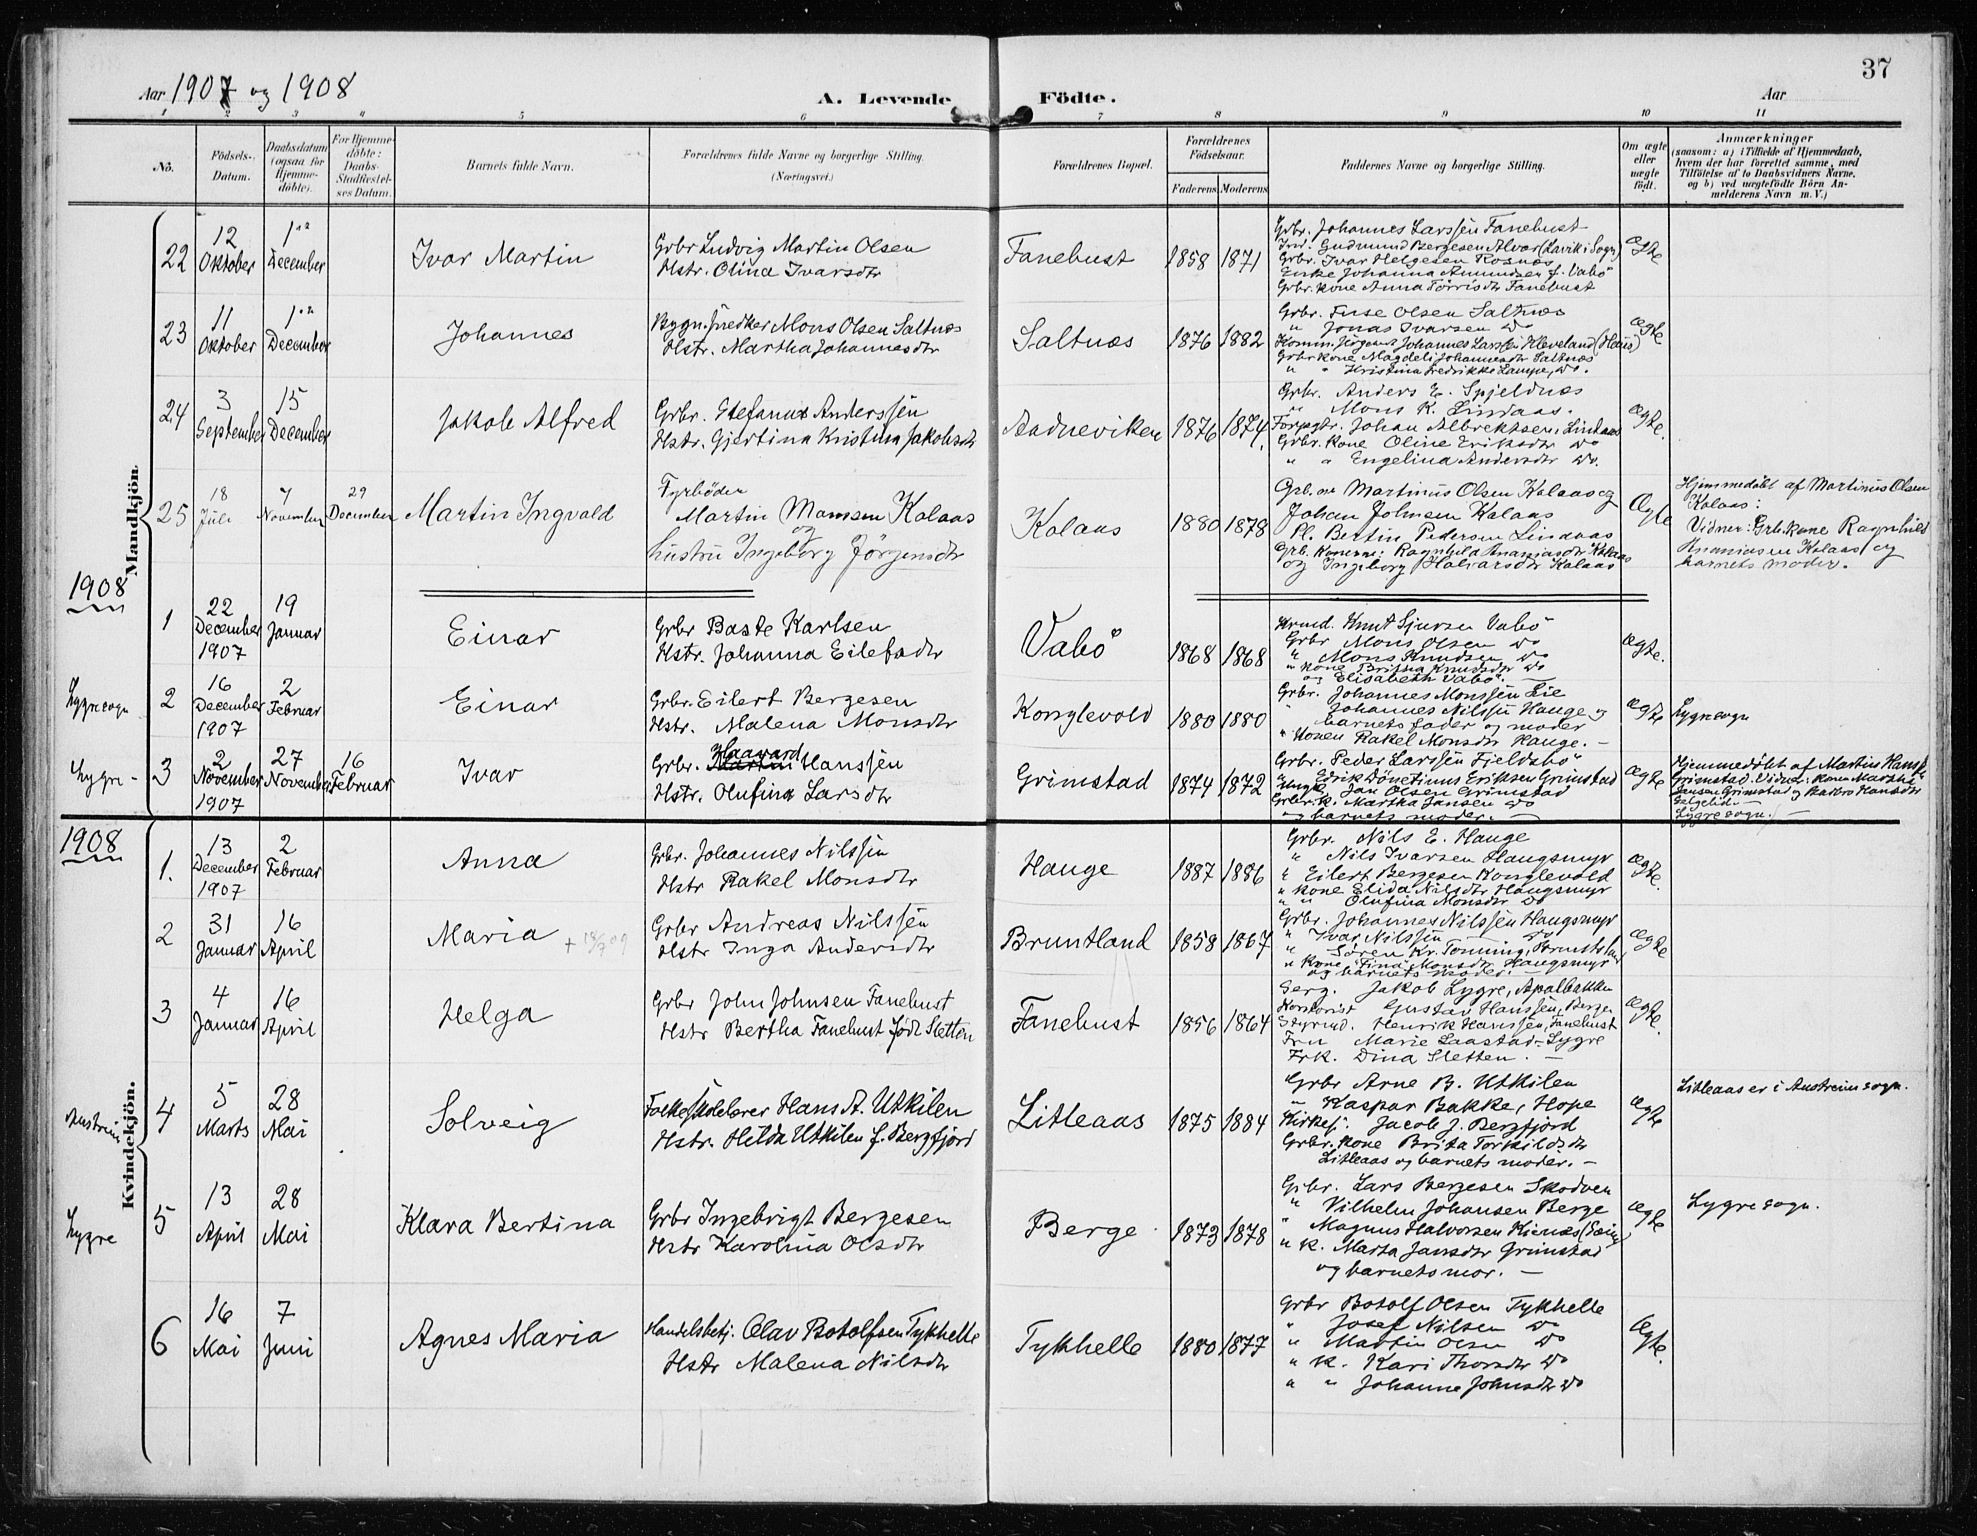 37
Aar 1907 og 1908
A. Levende Födte.
Aar
1 2 3 4 5 6 7 8 9 10 11
No.
Födsels-Datum.
Daabsdatum (ogsaa for Hjemmedöbte).
For Hjemmedöbte: Daabs-Stadfæstelses Datum.
Barnets fulde Navn.
Forældrenes fulde Navne og borgerlige Stilling. (Næringsvei.)
Forældrenes Bopæl.
Forældrenes Födselsaar.
Faderens Moderens
Faddernes Navne og borgerlige Stilling.
Om ægte eller uægte födt.
Anmærkninger
(saasom: a) i Tilfælde af Hjemmedaab, hvem der har forrettet samme, med Tilföielse af to Daabsvidners Navne, og b) ved uægtefödte Börn Anmelderens Navn m. V.)
Mandkjön.
22
12 Oktober
1ste December
Ivar Martin
Grbr Ludvig Martin Olsen
Hstr. Olina Ivarsdtr
Fanebust
1858 1871
Grbr. Johannes Larssen Fanebust
Ind. Gudmund Bergesen Alvar (Lavik i Sogn)
Grbr. Ivar Helgesen Rosnæs
Enke Johanna Amundsen f. Vabö
Grbr. kone Anna Torrisdtr Fanebust
Ægte
23
11 Oktober
1ste December
Johannes
Bygn. Snedker Mons Olsen Saltnæs
Hstr. Martha Johannesdtr
Saltnæs
1876 1882
Grbr. Fuse Olsen Saltnæs
" Jonas Ivarsen do
Johannes Larssen Kleveland (Haus)
Grbr kone Magdeli Johannesdtr Saltnæs
" " Kristina Fredrikke Lampe, do.
Ægte
24
3 September
15 December
Jakob Alfred
Grbr. Stefanus Anderssen
Hstr. Gjertina Kristina Jakobsdtr
Aadneviken
1876 1874
Grbr. Anders E. Spjeldnæs
" Mons K. Lindaas.
Forpgtr. Johan Albrektsen, Lindaas
Grbr. kone Oline Eriksdtr do
" " Engelina Andersdtr do.
Ægte.
25
18 Juli
7 November
29 December
Martin Ingvald
Fyrböder
Martin Monsen Kolaas
og
hustru Ingeborg Jörgensdtr
Kolaas
1880 1878
Grb.ne Martinus Olsen Kolaas og
Johan Johnsen Kalaas
Pl. Bertin Pedersen Lindaas
Grb. Konerne: Ragnhild Ananiasdtr Kolaas
og Ingeborg Halvarsdtr Kalaas
Ægte
Hjemmedöbt af Martinus Olsen
Kolaas:
Vidner: Grb. kone Ragnhild
Ananiasen Kolaas og
barnets moder.
1908
1
22 December 1907
19 Januar
Einar
Grbr Baste Karlsen
Hstr. Johanna Eilefsdtr
Vabö
1868 1868
Krmd. Knut Sjursen Vabö
Grbr Mons Olsen do
" Mons Knudsen do
" kone Britha Knudsdtr do
og Elisabeth Vabö. —
Ægte.
Lygre sogn
2
16 December 1907
2 Februar
Einar
Grbr. Eilert Bergesen
Hstr. Malena Monsdtr
Konglevold
1880 1880
Grbr. Johannes Monssen Lie
" Johannes Nilssen Hauge og
barnets fader og moder
" Konen Rakel Monsdtr Hauge. —
Ægte
Lygre sogn
Lygre -
3
2 November 1907
27 November
16 Februar
Ivar
Haavard
Grbr. Martin Hanssen
Hstr. Olufina Larsdtr
Grimstad
1874 1872
Grbr. Peder Larssen Fjeldsbö
" Erik Dönetinus Eriksen Grimstad
Ungk. Jan Olsen Grimstad
Grbr. k. Martha Jansen do
og barnets moder. —
Ægte
Hjemmedöbt af Martius Hanss.
Grimstad. Vidner: kone Martha
Jansen Grimstad og Barbro Hansdtr
Helgelid —
Lygre sogn. —
Kvindekjön.
1908
1.
13 December 1907
2 Februar
Anna
Grbr. Johannes Nilssen
Hstr Rakel Monsdtr
Hauge
1887 1886
Grbr. Nils E. Hauge
" Nils Ivarsen Haugsmyr
" Eilert Bergesen Konglevold
" kone Elida Nilsdtr Haugsmyr
" " Olufina Monsdtr do
Ægte.
2
31 Januar
16 April
Maria
Grbr Andreas Nilssen
Hstr Inga Andersdtr
Bruntland
1858 1867
Grbr. Johannes Nilssen Haugsmyr
" Ivar Nilssen — do
" Sören Kr. Tonning, Bruntland
" kone "Tina" Monsdtr Haugsmyr
og barnets moder. —
Ægte
3
4 Januar
16 April
Helga
Grbr John Johnsen Fanebust
Hstr Bertha Fanebust född Sletten
Fanebust
1856 1864
Serg. Jakob Lygre, Apalbakken
Kontorist Gustav Hanssen, Bergen
Styrmd. Henrik Hanssen, Fanebust
Fru Marie Laastad-Lygre
Frk. Dina Sletten. —
Ægte.
Austreim
4
5 Marts
28 Mai
Solveig
Folkeskolelærer Hans A. Utkilen
Hstr. Hilda Utkilen f. Bergfjord
Litleaas
1875 1884
Grbr Arne B. Utkilen
" Kaspar Bakke, Hope
Kirkesj. Jacob J. Bergfjord
Grbr. kone Brita Torkildsdtr
Litleaas og barnets moder. —
Ægte
Litleaas er i Austreim sogn.
Lygre
5
13 April
28 Mai
Klara Bertina
Grbr Ingebrigt Bergesen
Hstr Karolina Olsdtr
Berge
1873 1878
Grbr. Lars Bergesen Skodven
" Vilhelm Johansen Berge
" Magnus Halvorsen Kienæs
" k. Marta Jansdtr Grimstad
og barnets mor. —
Ægte
Lygre sogn.
6
16 Mai
7 Juni
Agnes Maria
Handelsbetj. Olav Botolfsen Tykhelle
Hstr Malena Nilsdtr
Tykhelle
1880 1877
Grbr Botolf Olsen Tykhelle
" Josef Nilsen do
" Martin Olsen do
" k. Kari Thorsdtr do
" " Johanne Johnsdtr do
Ægte.